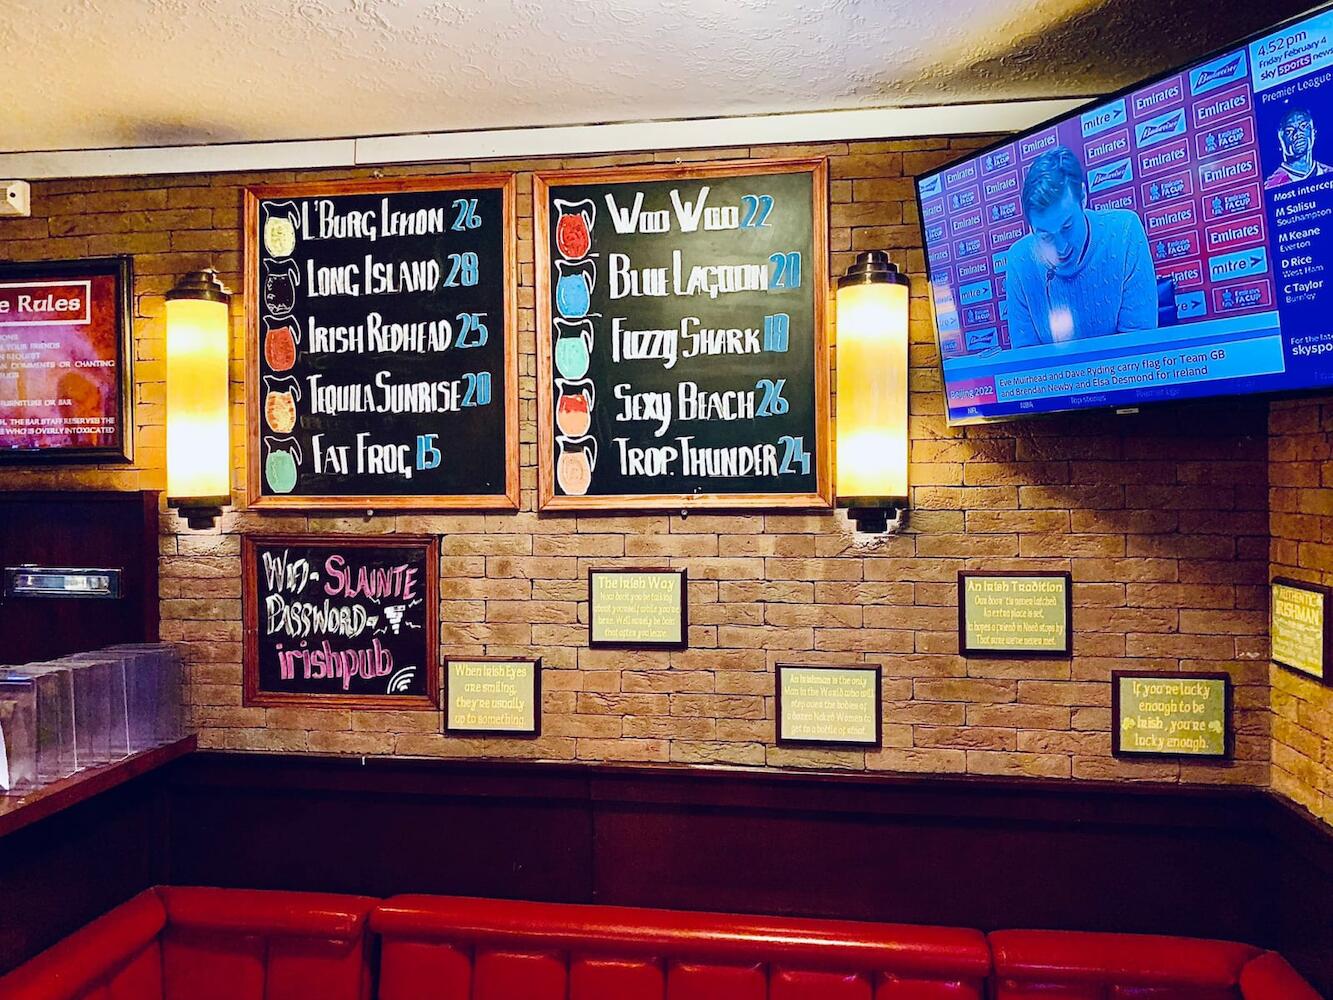 e Rules
IONS
L YOUR FRIENDS
N REQUEST
AN COMMENTS OR CHANTING
FURNITURE OR BAR
H, THE BAR STAFF RESERVES THE
E WHO IS OVERLY INTOXICATED
L'BURG LEMON 26
LONG ISLAND 28
IRISH REDHEAD 25
TEQUILA SUNRISE 20
FAT FROG 15
WOO WOO 22
BLUE LAGOON
FUZZY SHARK
SEXY BEACH 26
TROP. THUNDER 24
WIFI- SLAINTE
PASSWORD-
irishpub
When Irish Eyes
are smiling,
they're usually
up to something.
The Irish Way
Now don't you be talking
about yourself while you're
here. We'll surely be doin'
that after you leave.
An Irishman is the only
Man in the World who will
step over the bodies of
a dozen Naked Women to
get to a bottle of stout.
An Irish Tradition
Our door 'tis never latched
An extra place is set,
In hopes a friend in Need stops by
That sure we've never met.
If you're lucky
enough to be
Irish, you're
lucky enough.
AUTHENTIC
IRISHMAN
4.52pm
Friday February 4
sky sports news
Premier League
Most intercep
M Salisu
Southampton
M Keane
Everton
D Rice
West Ham
C Taylor
Burnley
For the late
skyspo
Budweiser
Emirates
mitre
Emirates
FA CUP
Beijing 2022
Eve Muirhead and Dave Ryding carry flag for Team GB
and Brendan Newby and Elsa Desmond for Ireland
NFL NBA Top stories